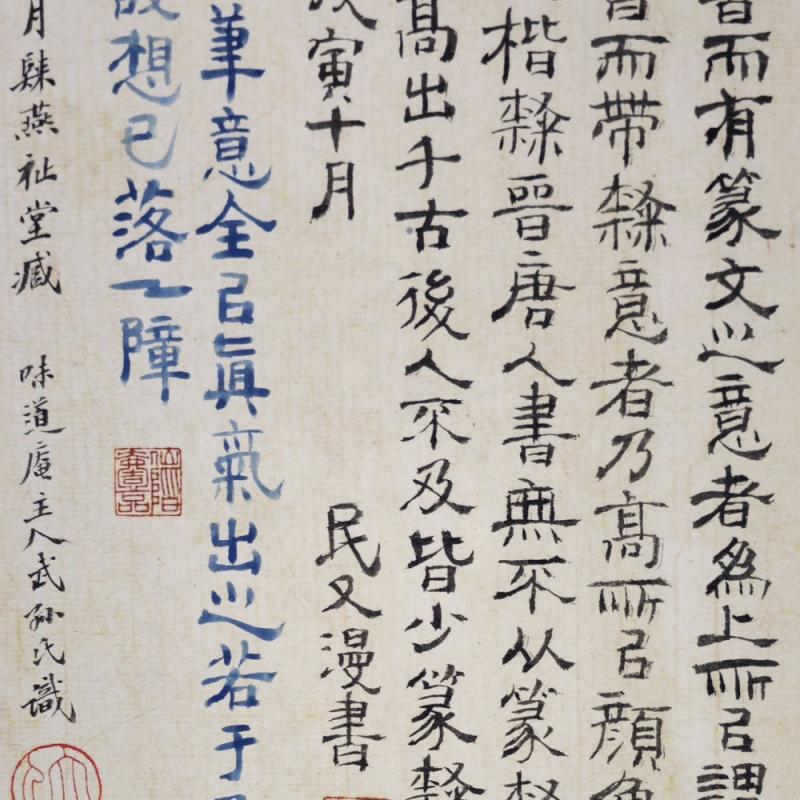 而有篆文之意者為上所㠯謂
而帶隸意者乃高所㠯顏魯
楷隸晉唐人書無不从篆隸
高出千古後人不及皆少篆隸
寅十月
民又漫書
筆意全㠯真氣出之若于
想已落一障
月肄燕祉堂臧
味道庵主人武孙氏識